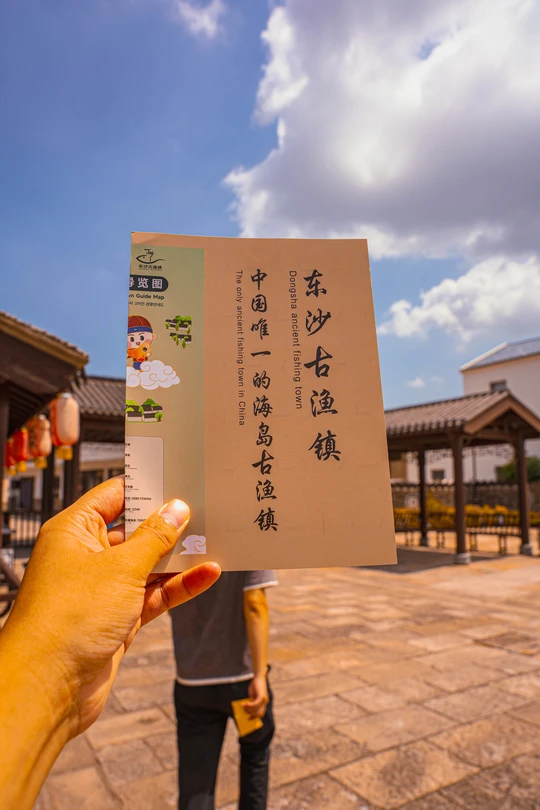 东沙古渔镇
Dongsha ancient fishing town
中国唯一的海岛古渔镇
The only ancient fishing town in China
导览图
m Guide Map